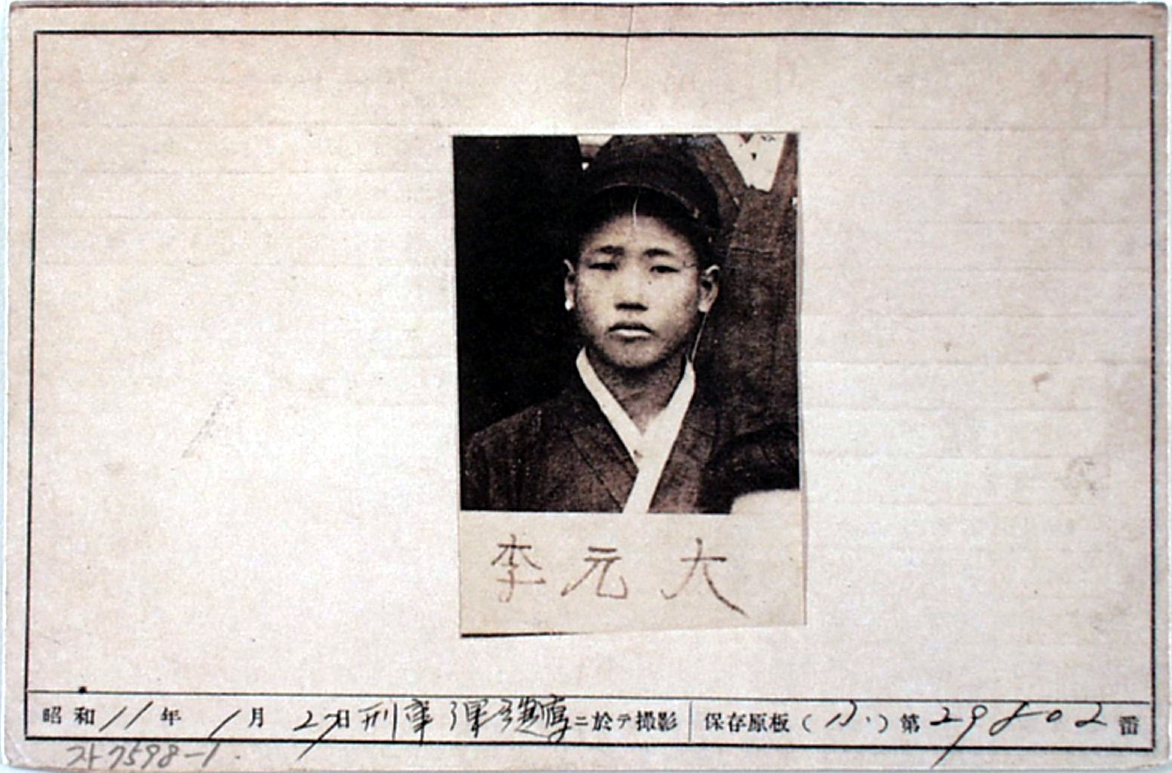 李元大
昭和11年1月27日刑事 ニ於テ撮影 保存原板(小)第29802番
자7598-1.